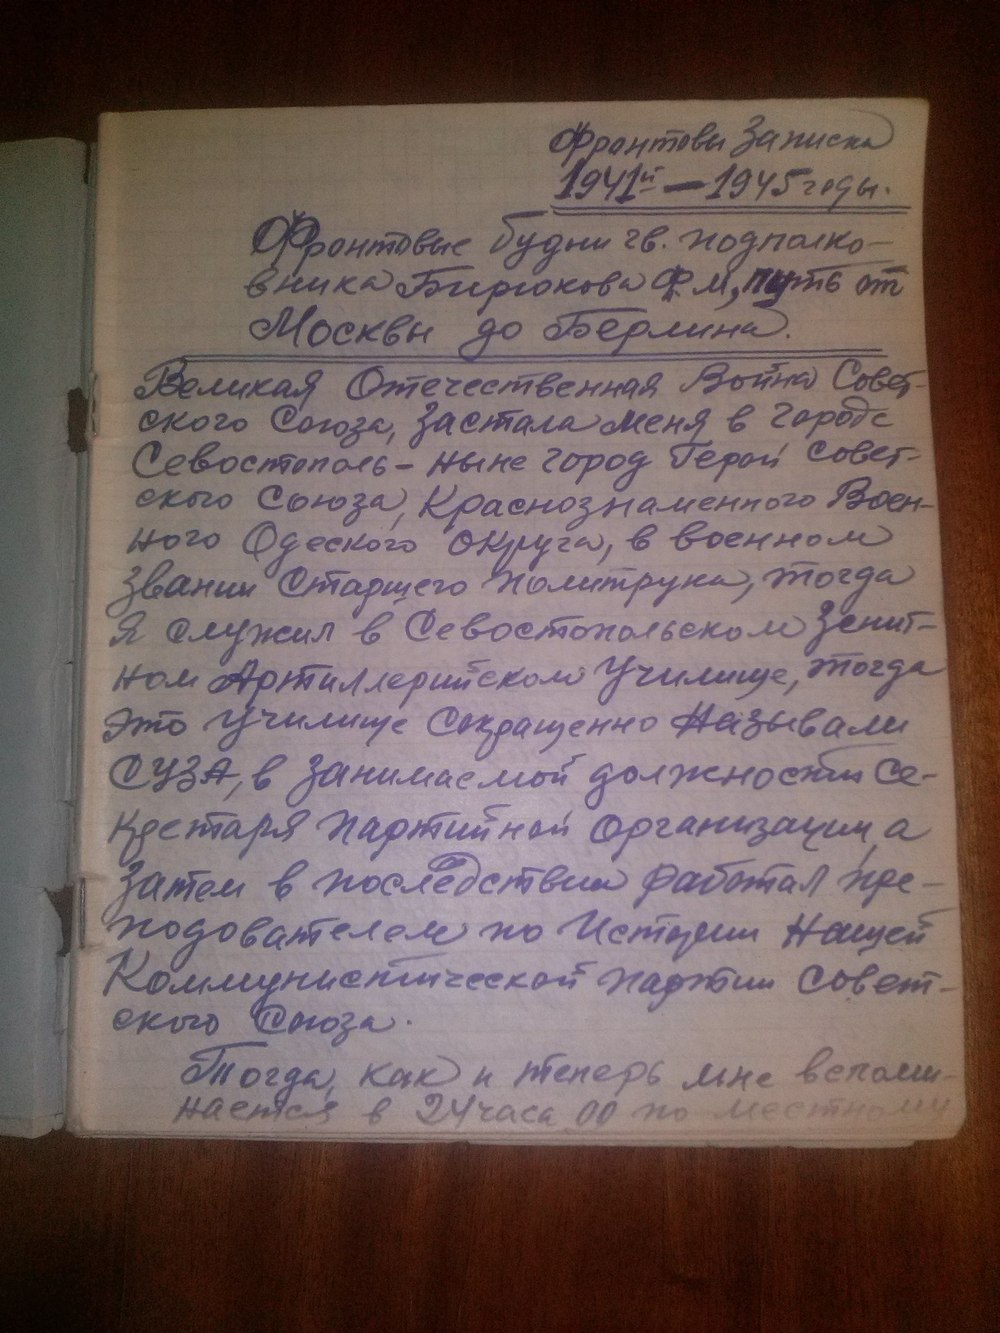 Фронтовы Записка
1941й — 1945 годы.
Фронтовые будни гв. подполко-
вника Бирюкова Ф.М, путь от
Москвы до Берлина.
Великая Отечественная Война Совет-
ского Союза, застала меня в городе
Севостополь - ныне город Герой Совет-
ского Союза, Краснознаменного Воен-
ного Одеского округа, в военном
звании Старшего Политрука, тогда
я служил в Севостопольском Зенит-
ном Артиллерийском Училище, тогда
это Училище Сокращенно Называли
СУЗА, в занимаемой должности Се-
кретаря Партийной Организации, а
Затем в последствии работал пре-
подователем по Истории Нашей
Коммунистической партии Совет-
ского Союза.
Тогда, как и теперь мне вспоми-
нается в 24 часа 00 по местному